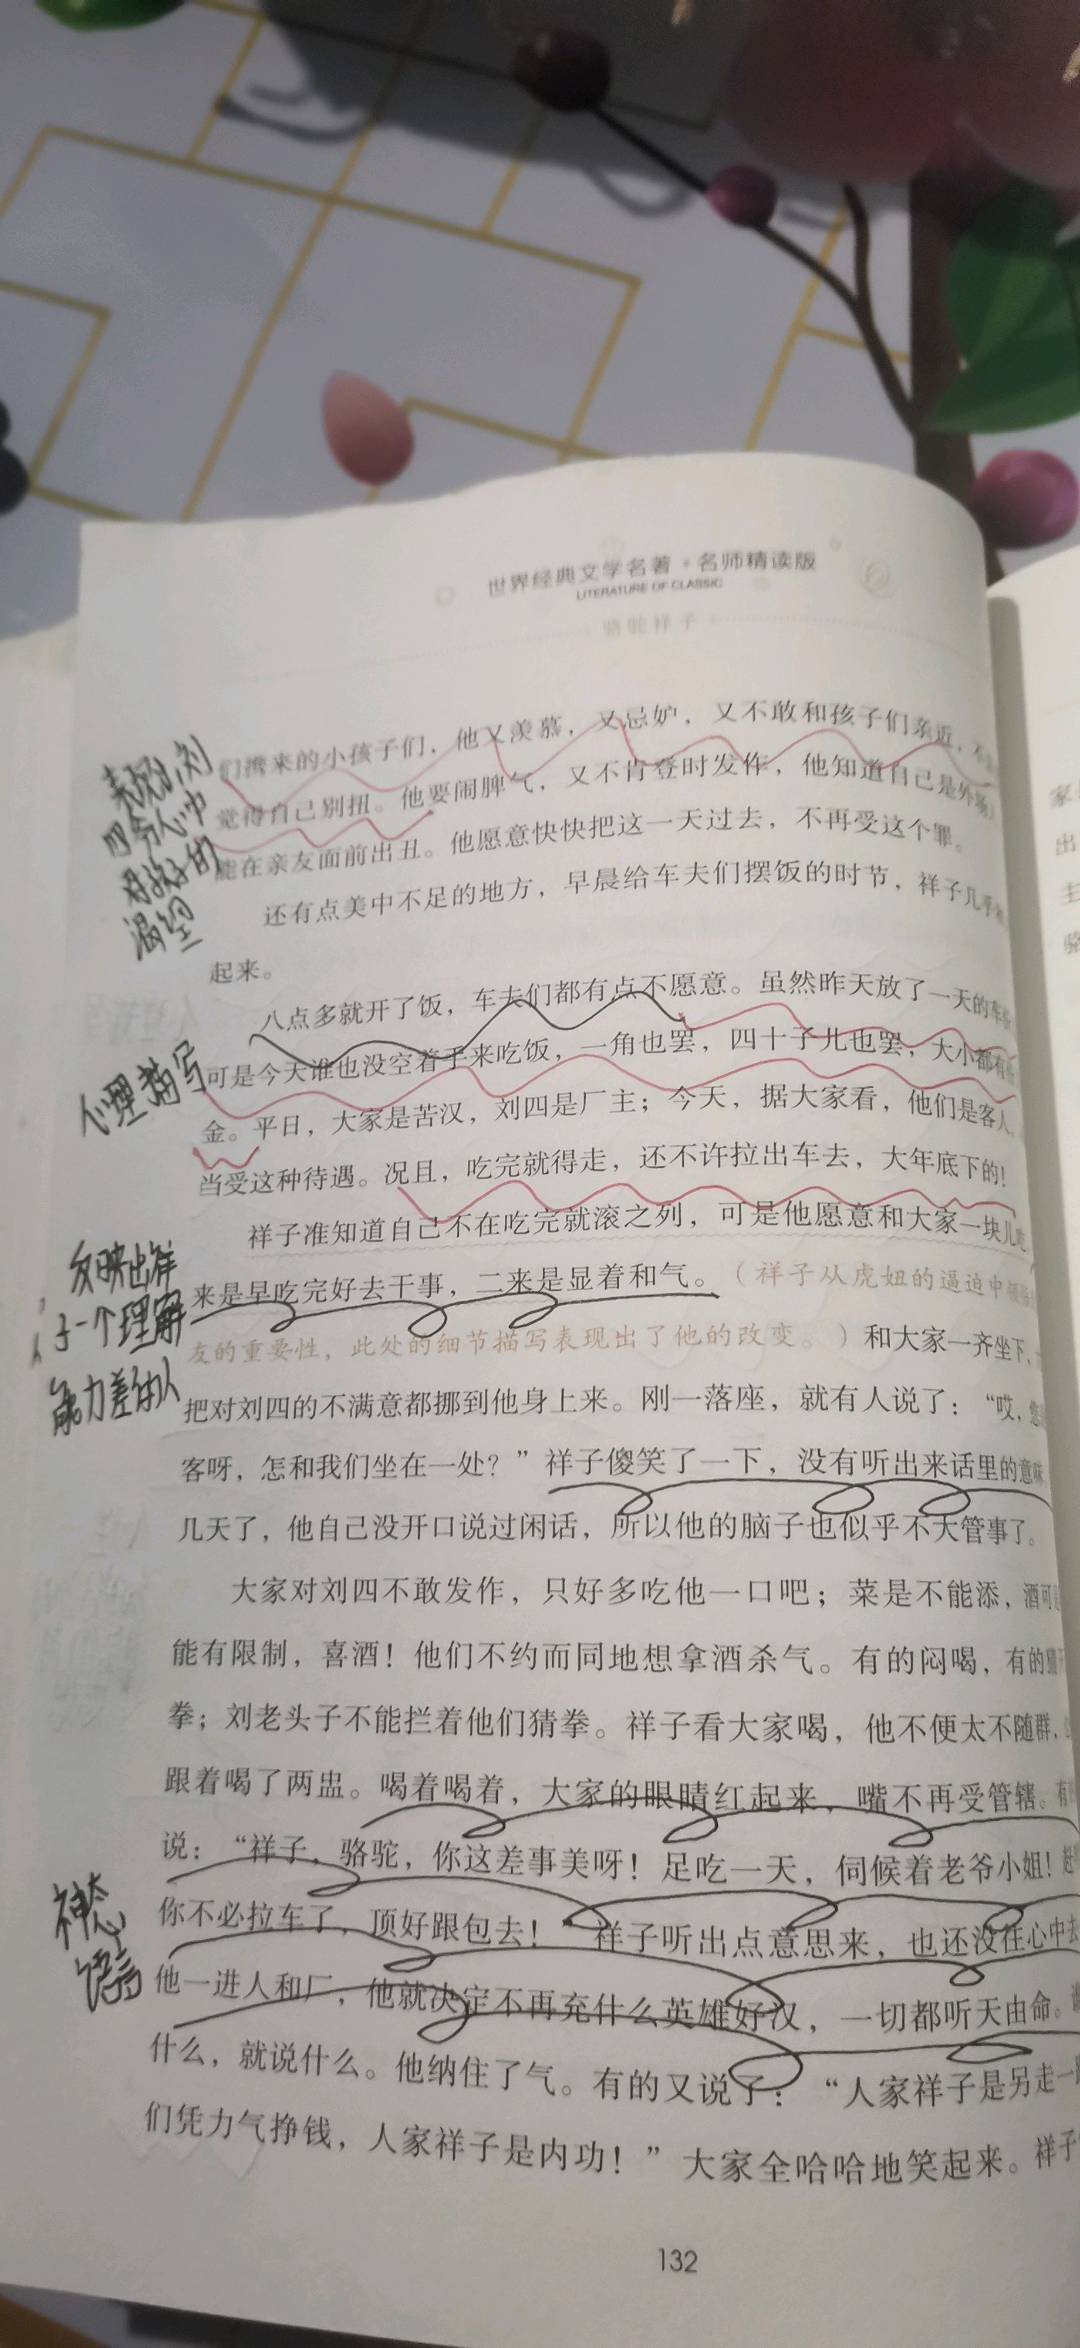 世界经典文学名著·名师精读版
LITERATURE OF CLASSIC
骆驼祥子
们携来的小孩子们，他又羡慕，又忌妒，又不敢和孩子们亲近，不
觉得自己别扭。他要闹脾气，又不肯登时发作，他知道自己是外场
能在亲友面前出丑。他愿意快快把这一天过去，不再受这个罪。
还有点美中不足的地方，早晨给车夫们摆饭的时节，祥子几乎和
起来。
八点多就开了饭，车夫们都有点不愿意。虽然昨天放了一天的车份
可是今天谁也没空着手来吃饭，一角也罢，四十子儿也罢，大小都有份
金。平日，大家是苦汉，刘四是厂主；今天，据大家看，他们是客人，
当受这种待遇。况且，吃完就得走，还不许拉出车去，大年底下的！
祥子准知道自己不在吃完就滚之列，可是他愿意和大家一块儿吃
来是早吃完好去干事，二来是显着和气。（祥子从虎妞的逼迫中领
友的重要性，此处的细节描写表现出了他的改变。）和大家一齐坐下，
把对刘四的不满意都挪到他身上来。刚一落座，就有人说了：“哎，您
客呀，怎和我们坐在一处？”祥子傻笑了一下，没有听出来话里的意味
几天了，他自己没开口说过闲话，所以他的脑子也似乎不大管事了。
大家对刘四不敢发作，只好多吃他一口吧；菜是不能添，酒可
能有限制，喜酒！他们不约而同地想拿酒杀气。有的闷喝，有的猜开
拳；刘老头子不能拦着他们猜拳。祥子看大家喝，他不便太不随群，
跟着喝了两盅。喝着喝着，大家的眼睛红起来，嘴不再受管辖。有
说：“祥子，骆驼，你这差事美呀！足吃一天，伺候着老爷小姐！赶
你不必拉车了，顶好跟包去！”祥子听出点意思来，也还没往心中去
他一进人和厂，他就决定不再充什么英雄好汉，一切都听天由命。
什么，就说什么。他纳住了气。有的又说了：“人家祥子是另走一
们凭力气挣钱，人家祥子是内功！”大家全哈哈地笑起来。祥子
132
表现出刘
四爷心中
对孩子的
渴望
心理描写
反映出祥
子一个理解
能力差的人
神态
语言